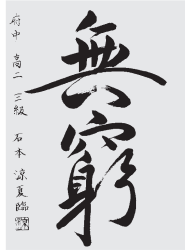 無窮
府中 高二 三級 石本 涼夏臨